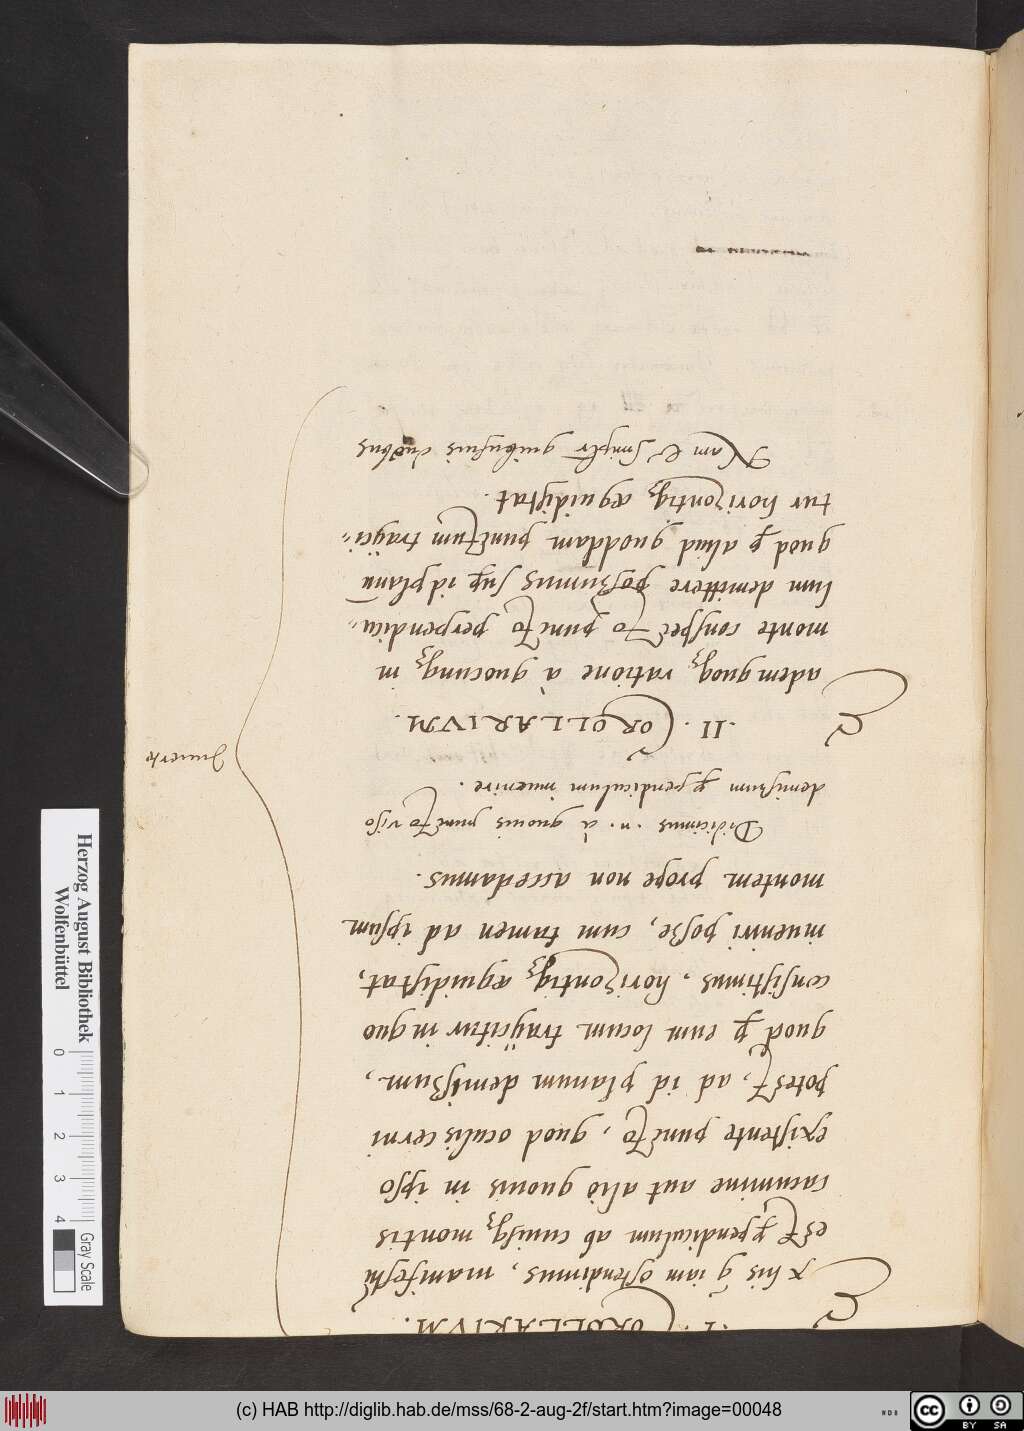 .I. COROLLARIVM.
Ex his q̃ iam ostendimus, manifestũ
est ꝑpendiculum ab cuiusq; montis
cacumine aut alio quouis in ipso
existente puncto, quod oculis cerni
potest, ad id planum demißum,
quod ꝑ eum locum traijcitur in quo
consistimus, horizontiq; æquidistat,
inueniri poße, cum tamen ad ipsum
montem prope non accedamus.
Didicimus .n. à quouis puncto viso
demißum ꝑpendiculum inuenire.
.II. COROLLARIVM.
Eademquoq; ratione à quocunq; in
monte conspecto puncto perpendicu„
lum demittere poßumus suꝑ id planũ
quod ꝑ aliud quoddam punctum traijci„
tur horizontiq; æquidistat.
Nam & simplr̃ quibusuis duobus
Herzog August Bibliothek
Wolfenbüttel
0 1 2 3 4
Gray Scale
(c) HAB http://diglib.hab.de/mss/68-2-aug-2f/start.htm?image=00048
WDB
cc BY SA